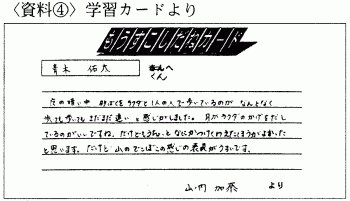 〈資料④〉学習カードより
もうすこしだねカード
青木 佑太 くんへ
夜の暗い中 砂ばくをラクダと1人の人で歩いているのが なんとなく
歩いても歩いてもまだまだ遠い と感じがしました。月がラクダのかげをだし
ているのがいいですね。だけどもうちょっとなにかつけくわえたほうがよかった
と思います。だけど 山のでこぼこの感じの表現がうまいです。
山内 加奈 より